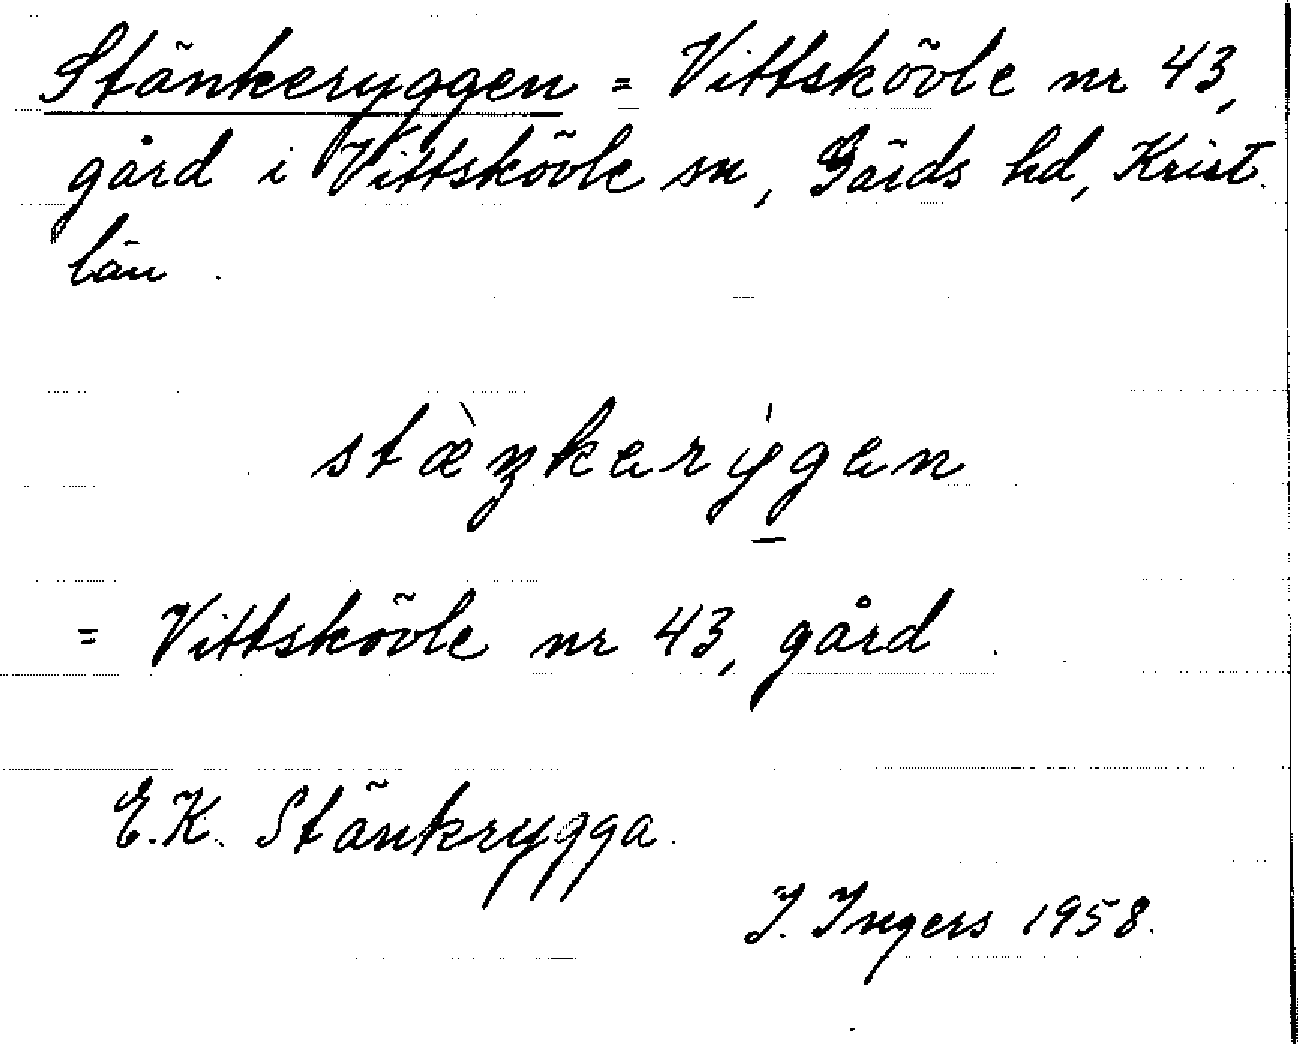 Stänkeryggen = Vittskövle nr 43,
gård i Vittskövle sn, Gärds hd, Krist.
län.
stæ̀ŋkerýgen
= Vittskövle nr 43, gård.
E.K. Stänkrygga.
I. Ingers 1958.